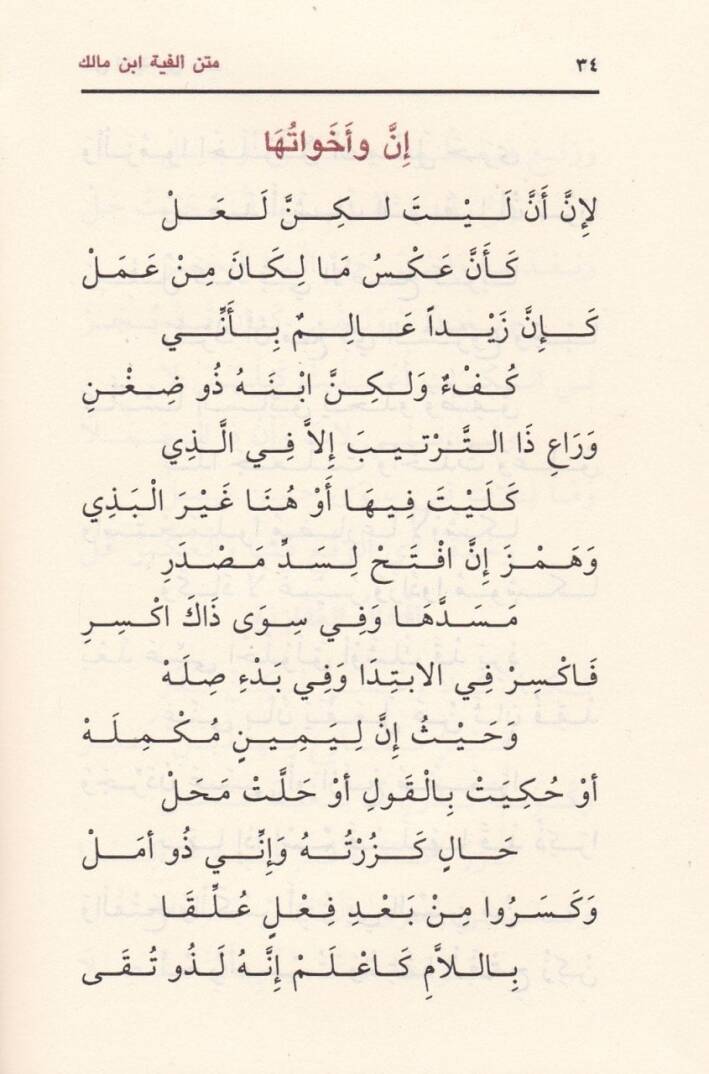 ٣٤ متن ألفية ابن مالك
إِنَّ وأَخَواتُهَا
لإِنَّ أَنَّ لَيْتَ لكِنَّ لَعَلْ
كَأَنَّ عَكْسُ مَا لِكَانَ مِنْ عَمَلْ
كَإِنَّ زَيْداً عَالِمٌ بِأَنِّي
كُفْءٌ وَلكِنَّ ابْنَهُ ذُو ضِغْنِ
وَرَاعِ ذَا التَّرْتيبَ إِلاَّ فِي الَّذِي
كَلَيْتَ فِيهَا أَوْ هُنَا غَيْرَ الْبَذِي
وَهَمْزَ إِنَّ افْتَحْ لِسَدِّ مَصْدَرِ
مَسَدَّهَا وَفِي سِوَى ذَاكَ اكْسِرِ
فَاكْسِرْ فِي الابتِدَا وَفِي بَدْءِ صِلَهْ
وَحَيْثُ إِنَّ لِيَمِينٍ مُكْمِلَهْ
أوْ حُكِيَتْ بِالْقَولِ أوْ حَلَّتْ مَحَلْ
حَالٍ كَزُرْتُهُ وَإِنِّي ذُو أمَلْ
وَكَسَرُوا مِنْ بَعْدِ فِعْلٍ عُلِّقَا
بِاللاَّمِ كَاعْلَمْ إِنَّهُ لَذُو تُقَى